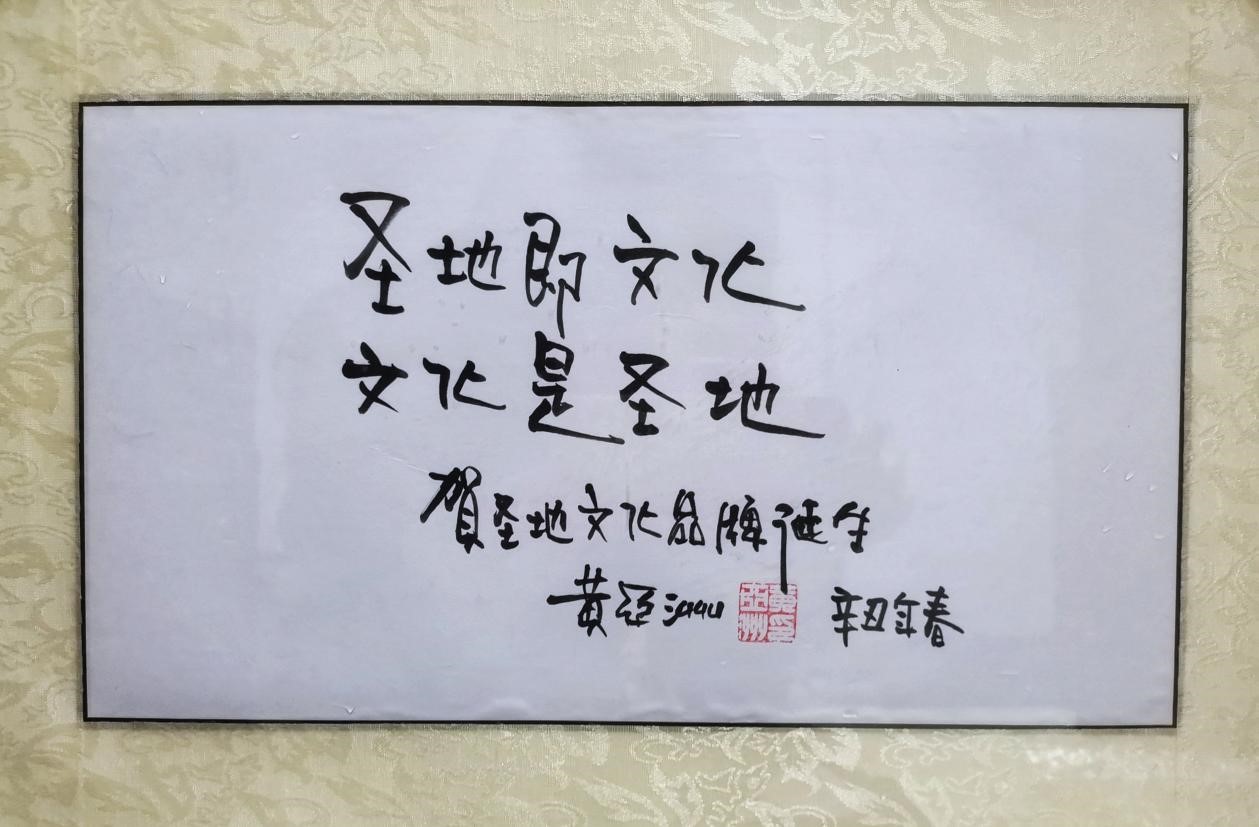 圣地即文化
文化是圣地
贺圣地文化品牌诞生
黄亚洲 黄亚洲印 辛丑年春